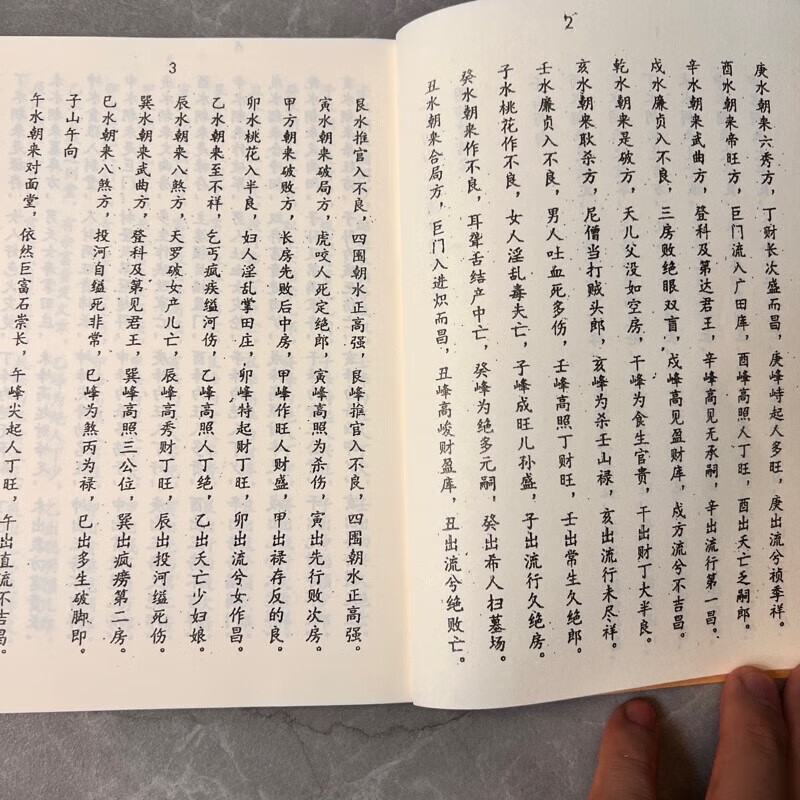 2
庚水朝来六秀方，丁财长次盛而昌，庚峰峙起人多旺，庚出流兮祯季祥。
酉水朝来帝旺方，巨门流入广田库，酉峰高照人丁旺，酉出夭亡乏嗣郎。
辛水朝来武曲方，登科及第达君王，辛峰高见无承嗣，辛出流行第一昌。
戌水廉贞入不良，三房败绝眼双盲，戌峰高见盈财库，戌方流兮不吉昌。
乾水朝来是破方，天儿父没如空房，干峰为食生官贵，干出财丁大半良。
亥水朝来耿杀方，尼僧当打贼头郎，亥峰为杀壬山禄，亥出流行未尽祥。
壬水廉贞入不良，男人吐血死多伤，壬峰高照丁财旺，壬出常生久绝郎。
子水桃花作不良，女人淫乱毒夫亡，子峰成旺儿孙盛，子出流行久绝房。
癸水朝来作不良，耳聋舌结产中亡，癸峰为绝多元嗣，癸出希人扫墓场。
丑水朝来合局方，巨门入进炽而昌，丑峰高峻财盈库，丑出流兮绝败亡。
3
艮水推官入不良，四围朝水正高强，艮峰推官入不良，四围朝水正高强。
寅水朝来破局方，虎咬人死定绝郎，寅峰高照为杀伤，寅出先行败次房。
甲方朝来破败方，长房先败后中房，甲峰作旺人财盛，甲出禄存反的良。
卯水桃花入半良，妇人淫乱掌田庄，卯峰特起财丁旺，卯出流兮女作昌。
乙水朝来至不祥，乞丐疯疾缢河伤，乙峰高照人丁绝，乙出夭亡少妇娘。
辰水朝来八煞方，天罗破女产儿亡，辰峰高秀财丁旺，辰出投河缢死伤。
巽水朝来武曲方，登科及第见君王，巽峰高照三公位，巽出疯痨第二房。
巳水朝来八煞方，投河自缢死非常，巳峰为煞丙为禄，巳出多生破脚郎。
子山午向
午水朝来对面堂，依然巨富石崇长，午峰尖起人丁旺，午出直流不吉昌。